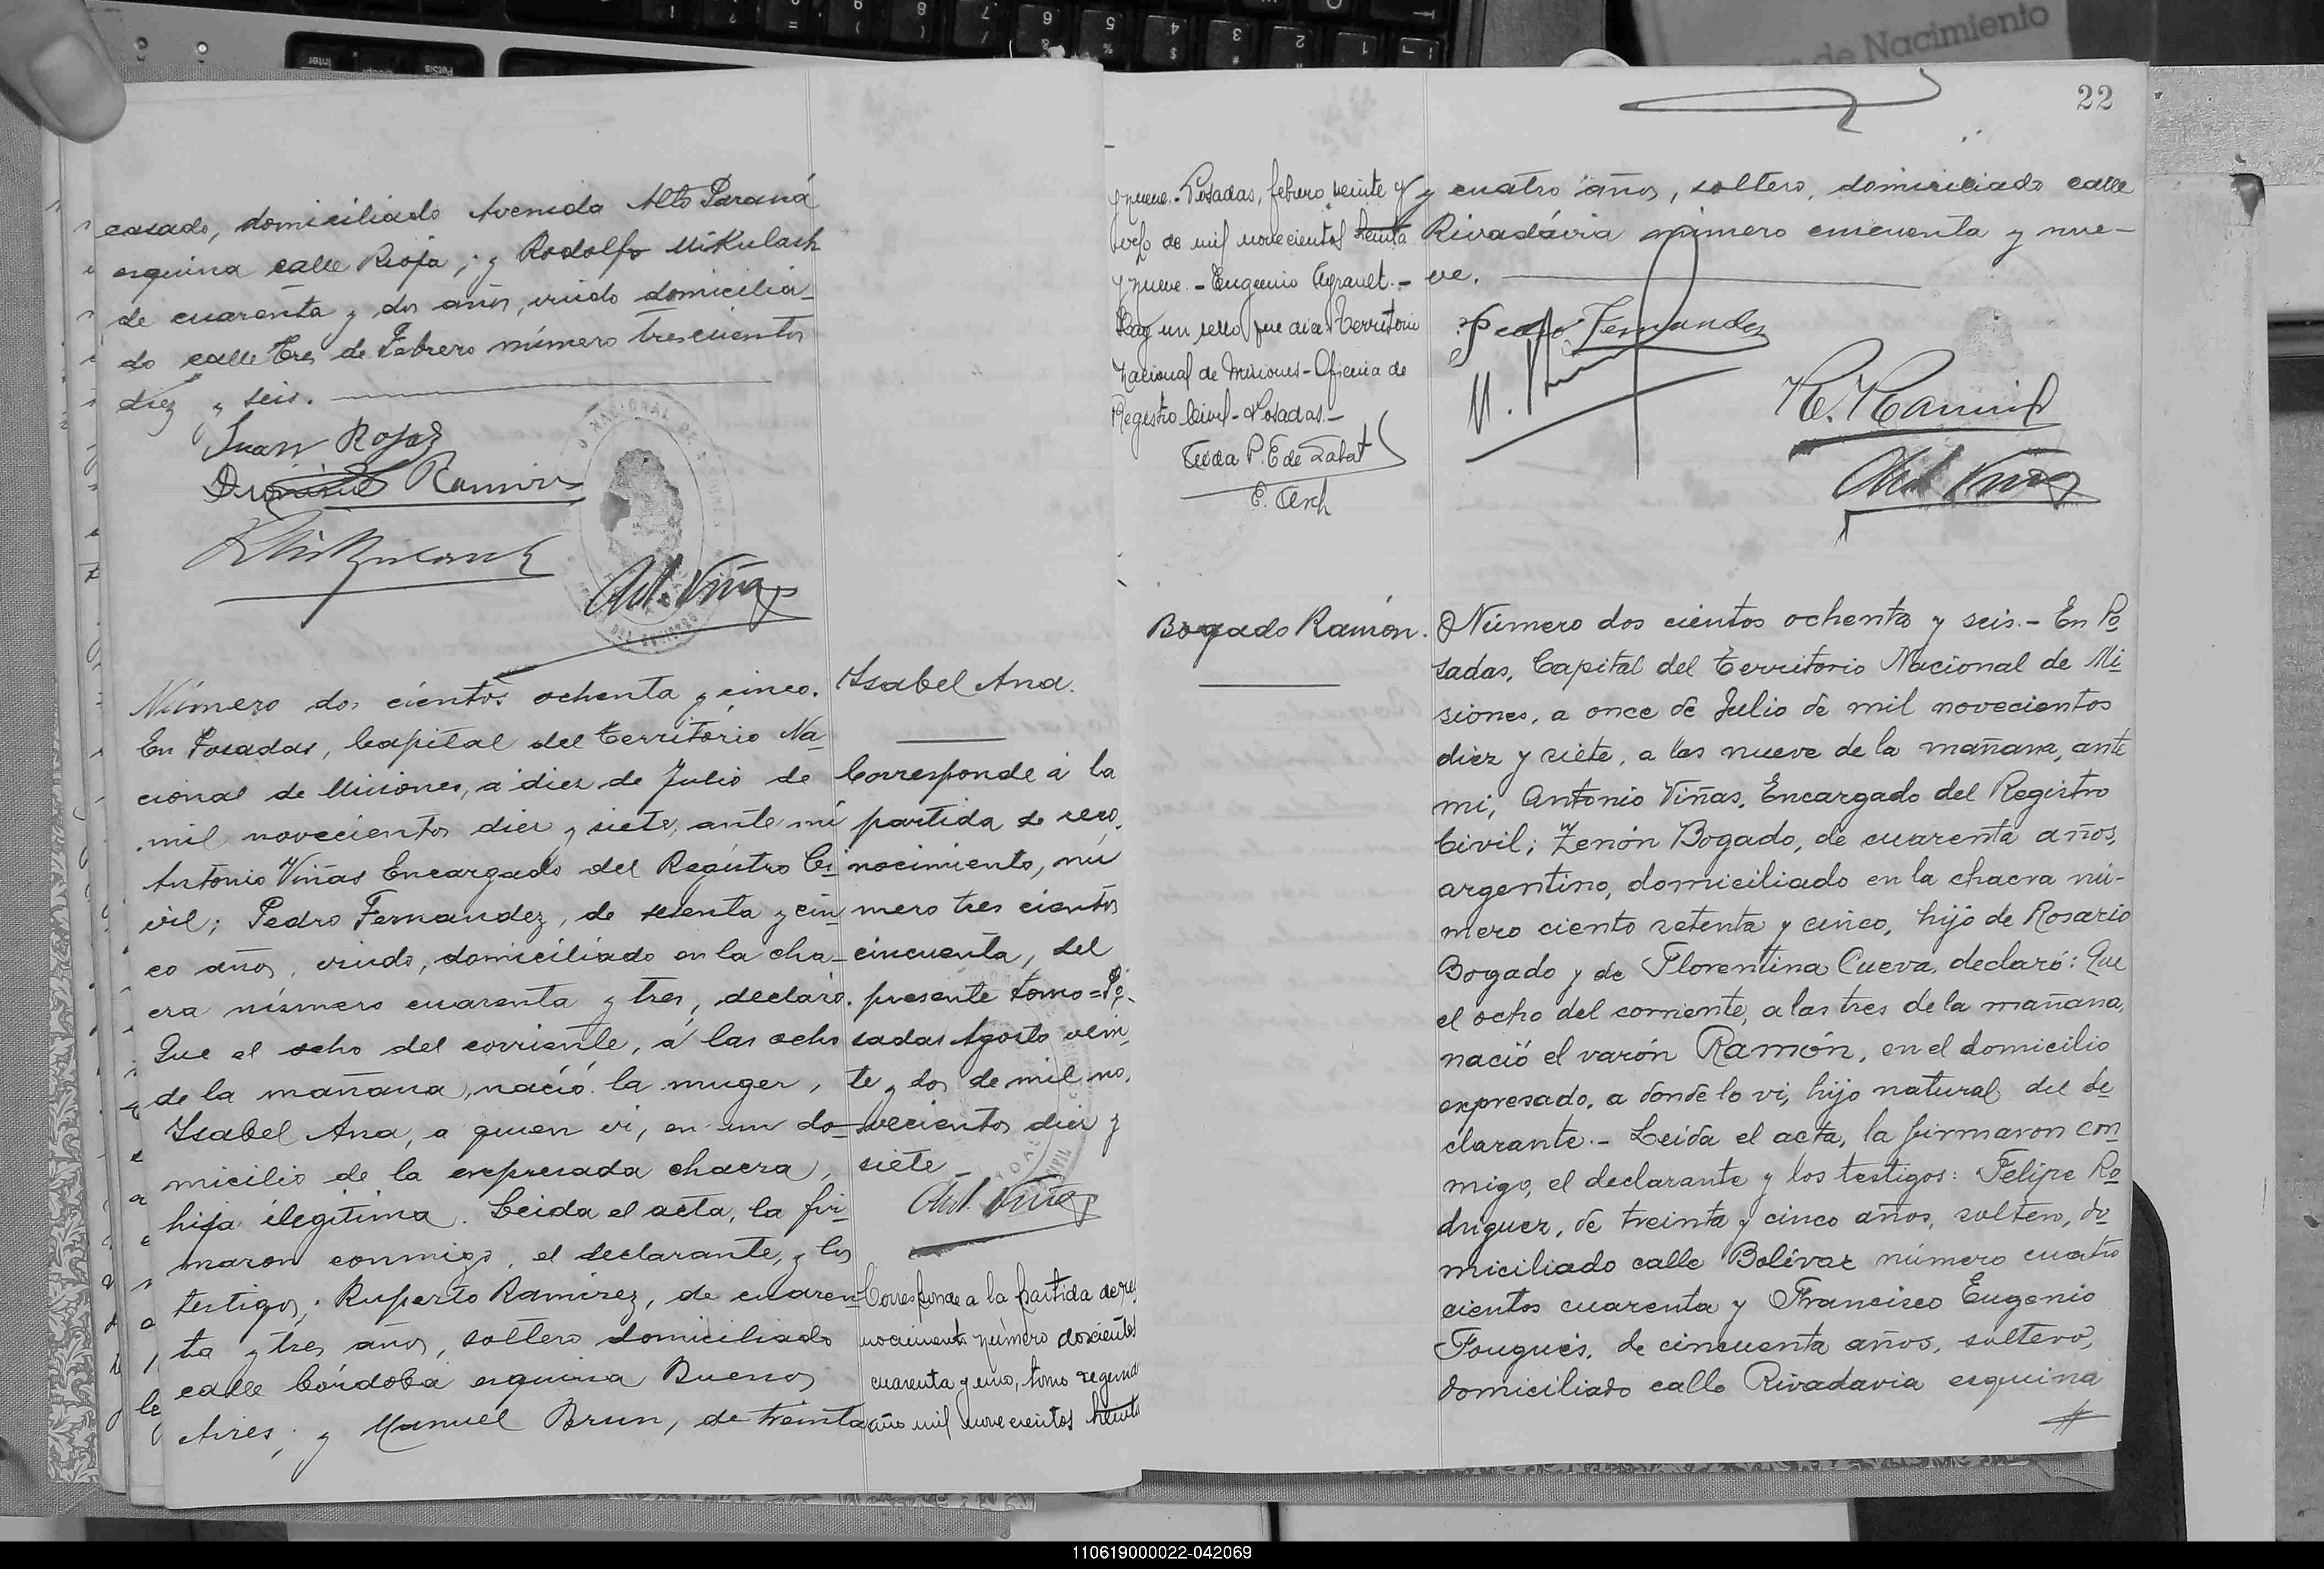 de Nacimiento
casado, domiciliado Avenida Alto Paraná
esquina calle Rioja; y Rodolfo Mikulash
de cuarenta y dos años, viudo domicilia-
do calle Tres de Febrero número trescientos
diez y seis.
Juan Rojas
Ramirez
Ant. Viñas
Número dos cientos ochenta y cinco.
En Posadas, Capital del Territorio Na-
cional de Misiones, a diez de Julio de
mil novecientos diez y siete, ante mí
Antonio Viñas Encargado del Registro Ci-
vil; Pedro Fernandez, de sesenta y cin-
co años, viudo, domiciliado en la cha-
cra número cuarenta y tres, declaró.
Que el ocho del corriente, á las ocho
de la mañana, nació la muger,
Isabel Ana, a quien vi, en un do-
micilio de la expresada chacra,
hija ilegítima. Leida el acta, la fir-
maron conmigo, el declarante, y los
testigos: Ruperto Ramirez, de cuaren-
ta y tres años, soltero domiciliado
calle Córdoba esquina Buenos
Aires; y Manuel Brun, de treinta
Isabel Ana.
Corresponde á la
partida de reco-
nocimiento, nú
mero tres cientos
cincuenta, del
presente tomo=Po-
sadas Agosto vein-
te y dos de mil no-
vecientos diez y
siete-
Ant. Viñas
Corresponde a la partida de reco
nocimiento número doscientos
cuarenta y uno, tomo segundo
año mil novecientos treinta
22
y nueve.- Posadas, febrero veinte y
ocho de mil novecientos treinta
y nueve.- Eugenio Agrault.-
Hay un sello que dice: Territorio
Nacional de Misiones-Oficina de
Registro Civil-Posadas.-
P. E de Zabat
y cuatro años, soltero, domiciliado calle
Rivadávia número cincuenta y nue-
ve.
Pedro Fernandez
R. Ramirez
Ant Viñas
Bogado Ramón.
Número dos cientos ochenta y seis.- En Po
sadas, Capital del Territorio Nacional de Mi
siones, a once de Julio de mil novecientos
diez y siete, a las nueve de la mañana, ante
mi, Antonio Viñas, Encargado del Registro
Civil; Zenón Bogado, de cuarenta años,
argentino, domiciliado en la chacra nú-
mero ciento setenta y cinco, hijo de Rosario
Bogado y de Florentina Cueva, declaró: Que
el ocho del corriente, a las tres de la mañana,
nació el varón Ramón, en el domicilio
expresado, a donde lo vi, hijo natural del de
clarante.- Leída el acta, la firmaron con
migo, el declarante y los testigos: Felipe Ro
driguez, de treinta y cinco años, soltero, do
miciliado calle Bolívar número cuatro
cientos cuarenta y Francisco Eugenio
Fougués, de cincuenta años, soltero,
domiciliado calle Rivadavia esquina
110619000022-042069